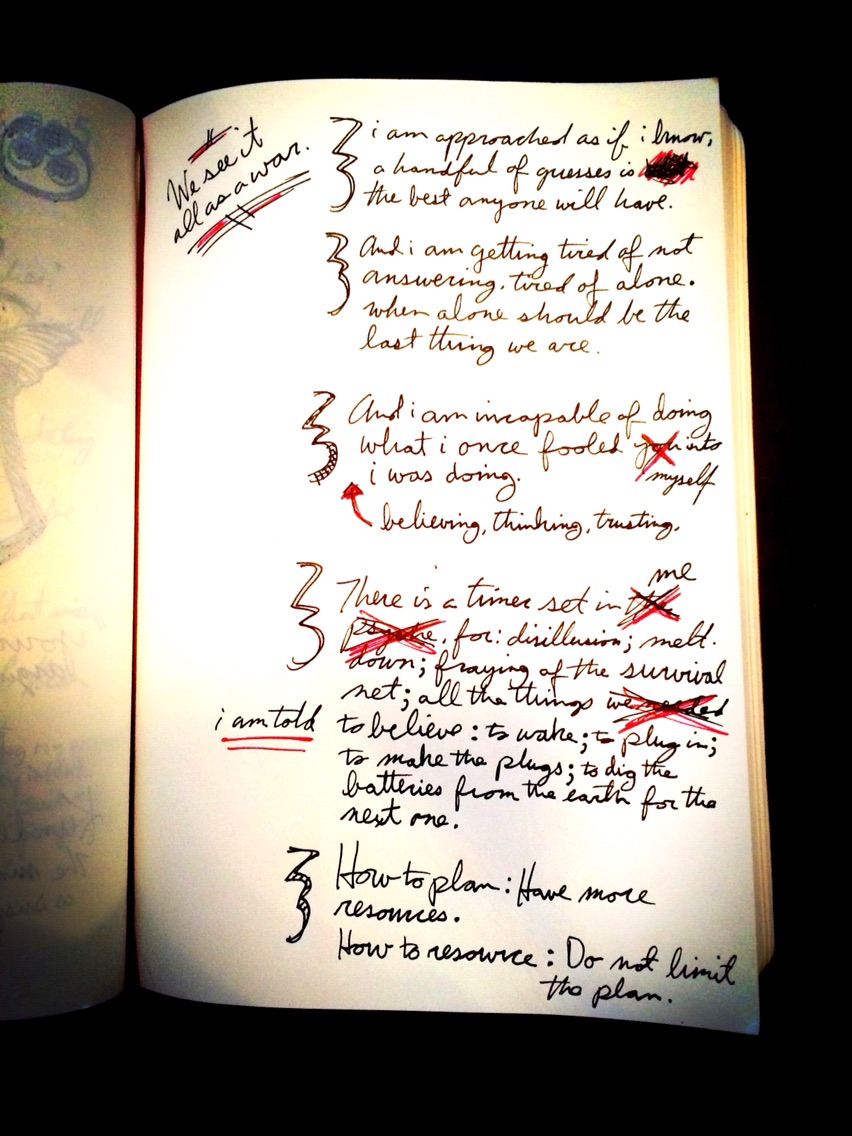 We see it
all as a war.
i am approached as if i know,
a handful of guesses is
the best anyone will have.
And i am getting tired of not
answering. tired of alone.
when alone should be the
last thing we are.
And i am incapable of doing
what i once fooled you into
myself
i was doing.
believing, thinking, trusting.
me
There is a timer set in the
psyche, for: disillusion; melt-
down; fraying of the survival
net; all the things we needed
i am told
to believe: to wake; to plug in;
to make the plugs; to dig the
batteries from the earth for the
next one.
How to plan: Have more
resources.
How to resource: Do not limit
the plan.